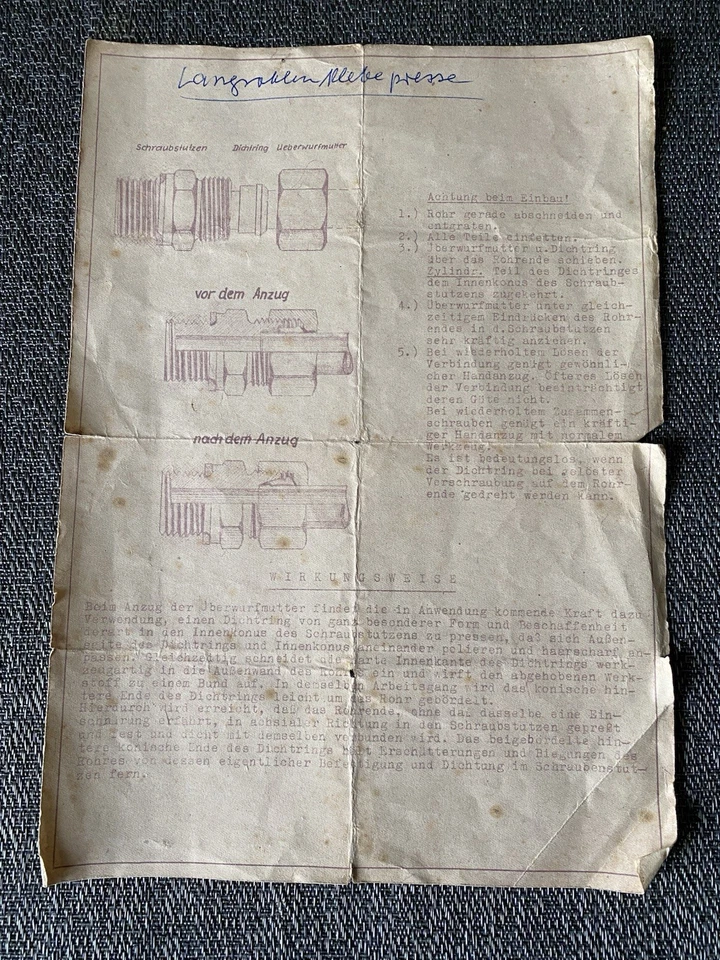 Langsohlen Klebepresse
Schraubstutzen Dichtring Ueberwurfmutter
vor dem Anzug
nach dem Anzug
Achtung beim Einbau!
1.) Rohr gerade abschneiden und
entgraten.
2.) Alle Teile einfetten.
3.) Überwurfmutter u.Dichtring
über das Rohrende schieben.
Zylindr. Teil des Dichtringes
dem Innenkonus des Schraub-
stutzens zugekehrt.
4.) Überwurfmutter unter gleich-
zeitigem Eindrücken des Rohr-
endes in d.Schraubstutzen
sehr kräftig anziehen.
5.) Bei wiederholtem Lösen der
Verbindung genügt gewöhnli-
cher Handanzug. Öfteres Lösen
der Verbindung beeinträchtigt
deren Güte nicht.
Bei wiederholtem Zusammen-
schrauben genügt ein kräfti-
ger Handanzug mit normalem
Werkzeug.
Es ist bedeutungslos, wenn
der Dichtring bei gelöster
Verschraubung auf dem Rohr-
ende gedreht werden kann.
WIRKUNGSWEISE
Beim Anzug der Überwurfmutter findet die in Anwendung kommende Kraft dazu
Verwendung, einen Dichtring von ganz besonderer Form und Beschaffenheit
derart in den Innenkonus des Schraubstutzens zu pressen, daß sich Außen-
seite des Dichtrings und Innenkonus aneinander polieren und haarscharf an-
passen. Gleichzeitig schneidet die harte Innenkante des Dichtrings werk-
zeugartig in die Außenwand des Rohres ein und wirft den abgehobenen Werk-
stoff zu einem Bund auf. In demselben Arbeitsgang wird das konische hin-
tere Ende des Dichtrings leicht um das Rohr gebördelt.
Hierdurch wird erreicht, daß das Rohrende, ohne daß dasselbe eine Ein-
schnürung erfährt, in achsialer Richtung in den Schraubstutzen gepreßt
und fest und dicht mit demselben verbunden wird. Das beigebördelte hin-
tere konische Ende des Dichtrings hält Erschütterungen und Biegungen des
Rohres von dessen eigentlicher Befestigung und Dichtung im Schraubenstut-
zen fern.